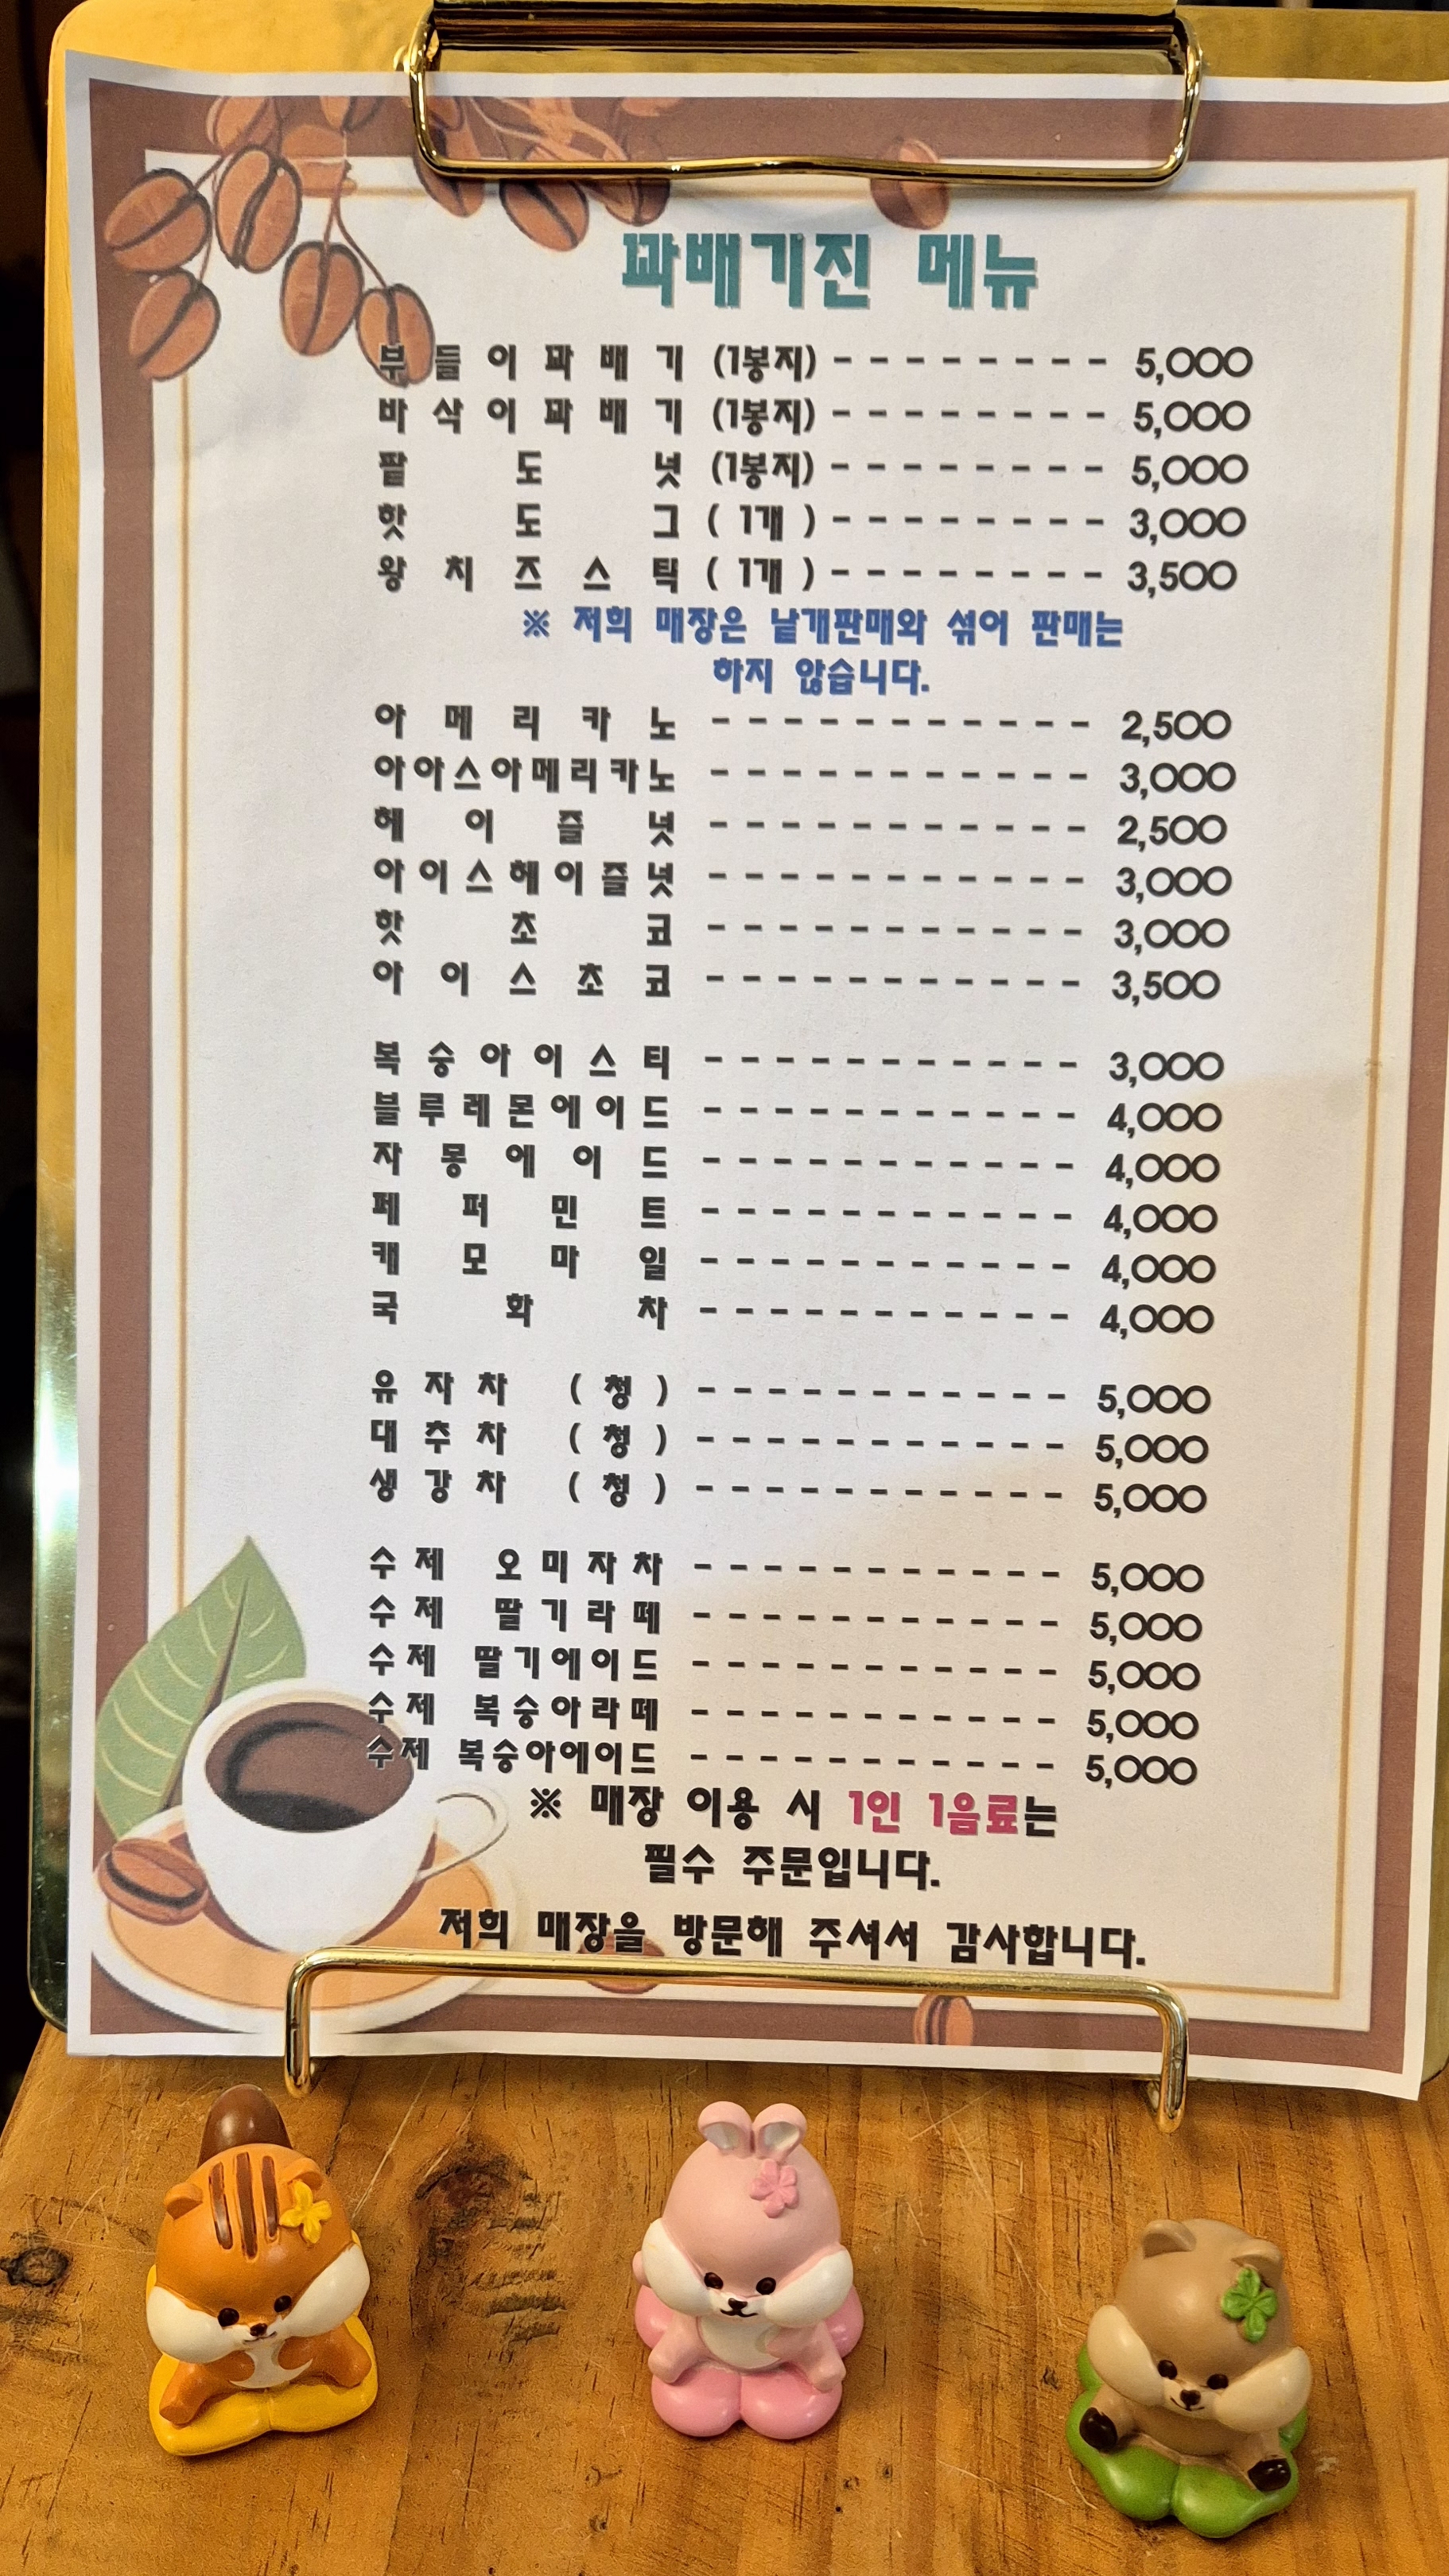 꽈배기진 메뉴
부들이꽈배기 (1봉지) - - - - - - - - 5,000
바삭이꽈배기 (1봉지) - - - - - - - - 5,000
팥도넛 (1봉지) - - - - - - - - 5,000
핫도그 ( 1개 ) - - - - - - - - 3,000
왕치즈스틱 ( 1개 ) - - - - - - - - 3,500
※ 저희 매장은 낱개판매와 섞어 판매는
하지 않습니다.
아메리카노 - - - - - - - - - - - 2,500
아아스아메리카노 - - - - - - - - - - - 3,000
헤이즐넛 - - - - - - - - - - - 2,500
아이스헤이즐넛 - - - - - - - - - - - 3,000
핫초코 - - - - - - - - - - - 3,000
아이스초코 - - - - - - - - - - - 3,500
복숭아이스티 - - - - - - - - - - - 3,000
블루레몬에이드 - - - - - - - - - - - 4,000
자몽에이드 - - - - - - - - - - - 4,000
페퍼민트 - - - - - - - - - - - 4,000
캐모마일 - - - - - - - - - - - 4,000
국화차 - - - - - - - - - - - 4,000
유자차 ( 청 ) - - - - - - - - - - - 5,000
대추차 ( 청 ) - - - - - - - - - - - 5,000
생강차 ( 청 ) - - - - - - - - - - - 5,000
수제 오미자차 - - - - - - - - - - - 5,000
수제 딸기라떼 - - - - - - - - - - - 5,000
수제 딸기에이드 - - - - - - - - - - - 5,000
수제 복숭아라떼 - - - - - - - - - - - 5,000
수제 복숭아에이드 - - - - - - - - - - - 5,000
※ 매장 이용 시 1인 1음료는
필수 주문입니다.
저희 매장을 방문해 주셔서 감사합니다.